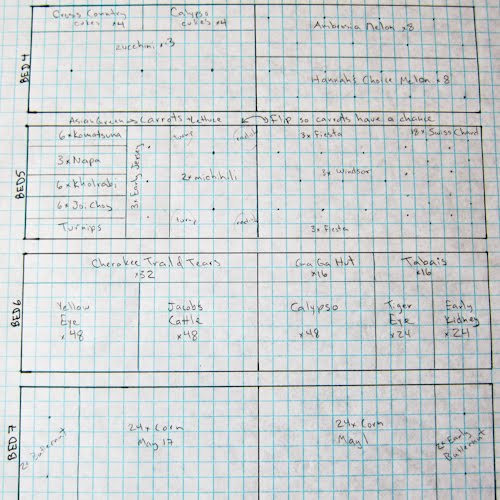 BED 4
Cross Country
cukes x4
Calypso
cukes x4
zucchini x3
Ambrosia Melon x8
Hannah's Choice Melon x8
Asian Greens Carrots + Lettuce
Flip so carrots have a chance
BED 5
6x Komatsuna
3x Napa
6x Kholrabi
6x Joi Choy
Turnips
3x Early Jersey
2x michihili
3x Fiesta
18x Swiss Chard
3x Windsor
3x Fiesta
BED 6
Cherokee Trail of Tears
x32
Ga Ga Hut
x16
Tabais
x16
Yellow
Eye
x48
Jacobs
Cattle
x48
Calypso
x48
Tiger
Eye
x24
Early
Kidney
x24
BED 7
2x Butternut
24x Corn
May 17
24x Corn
May 1
2x Early
Butternut